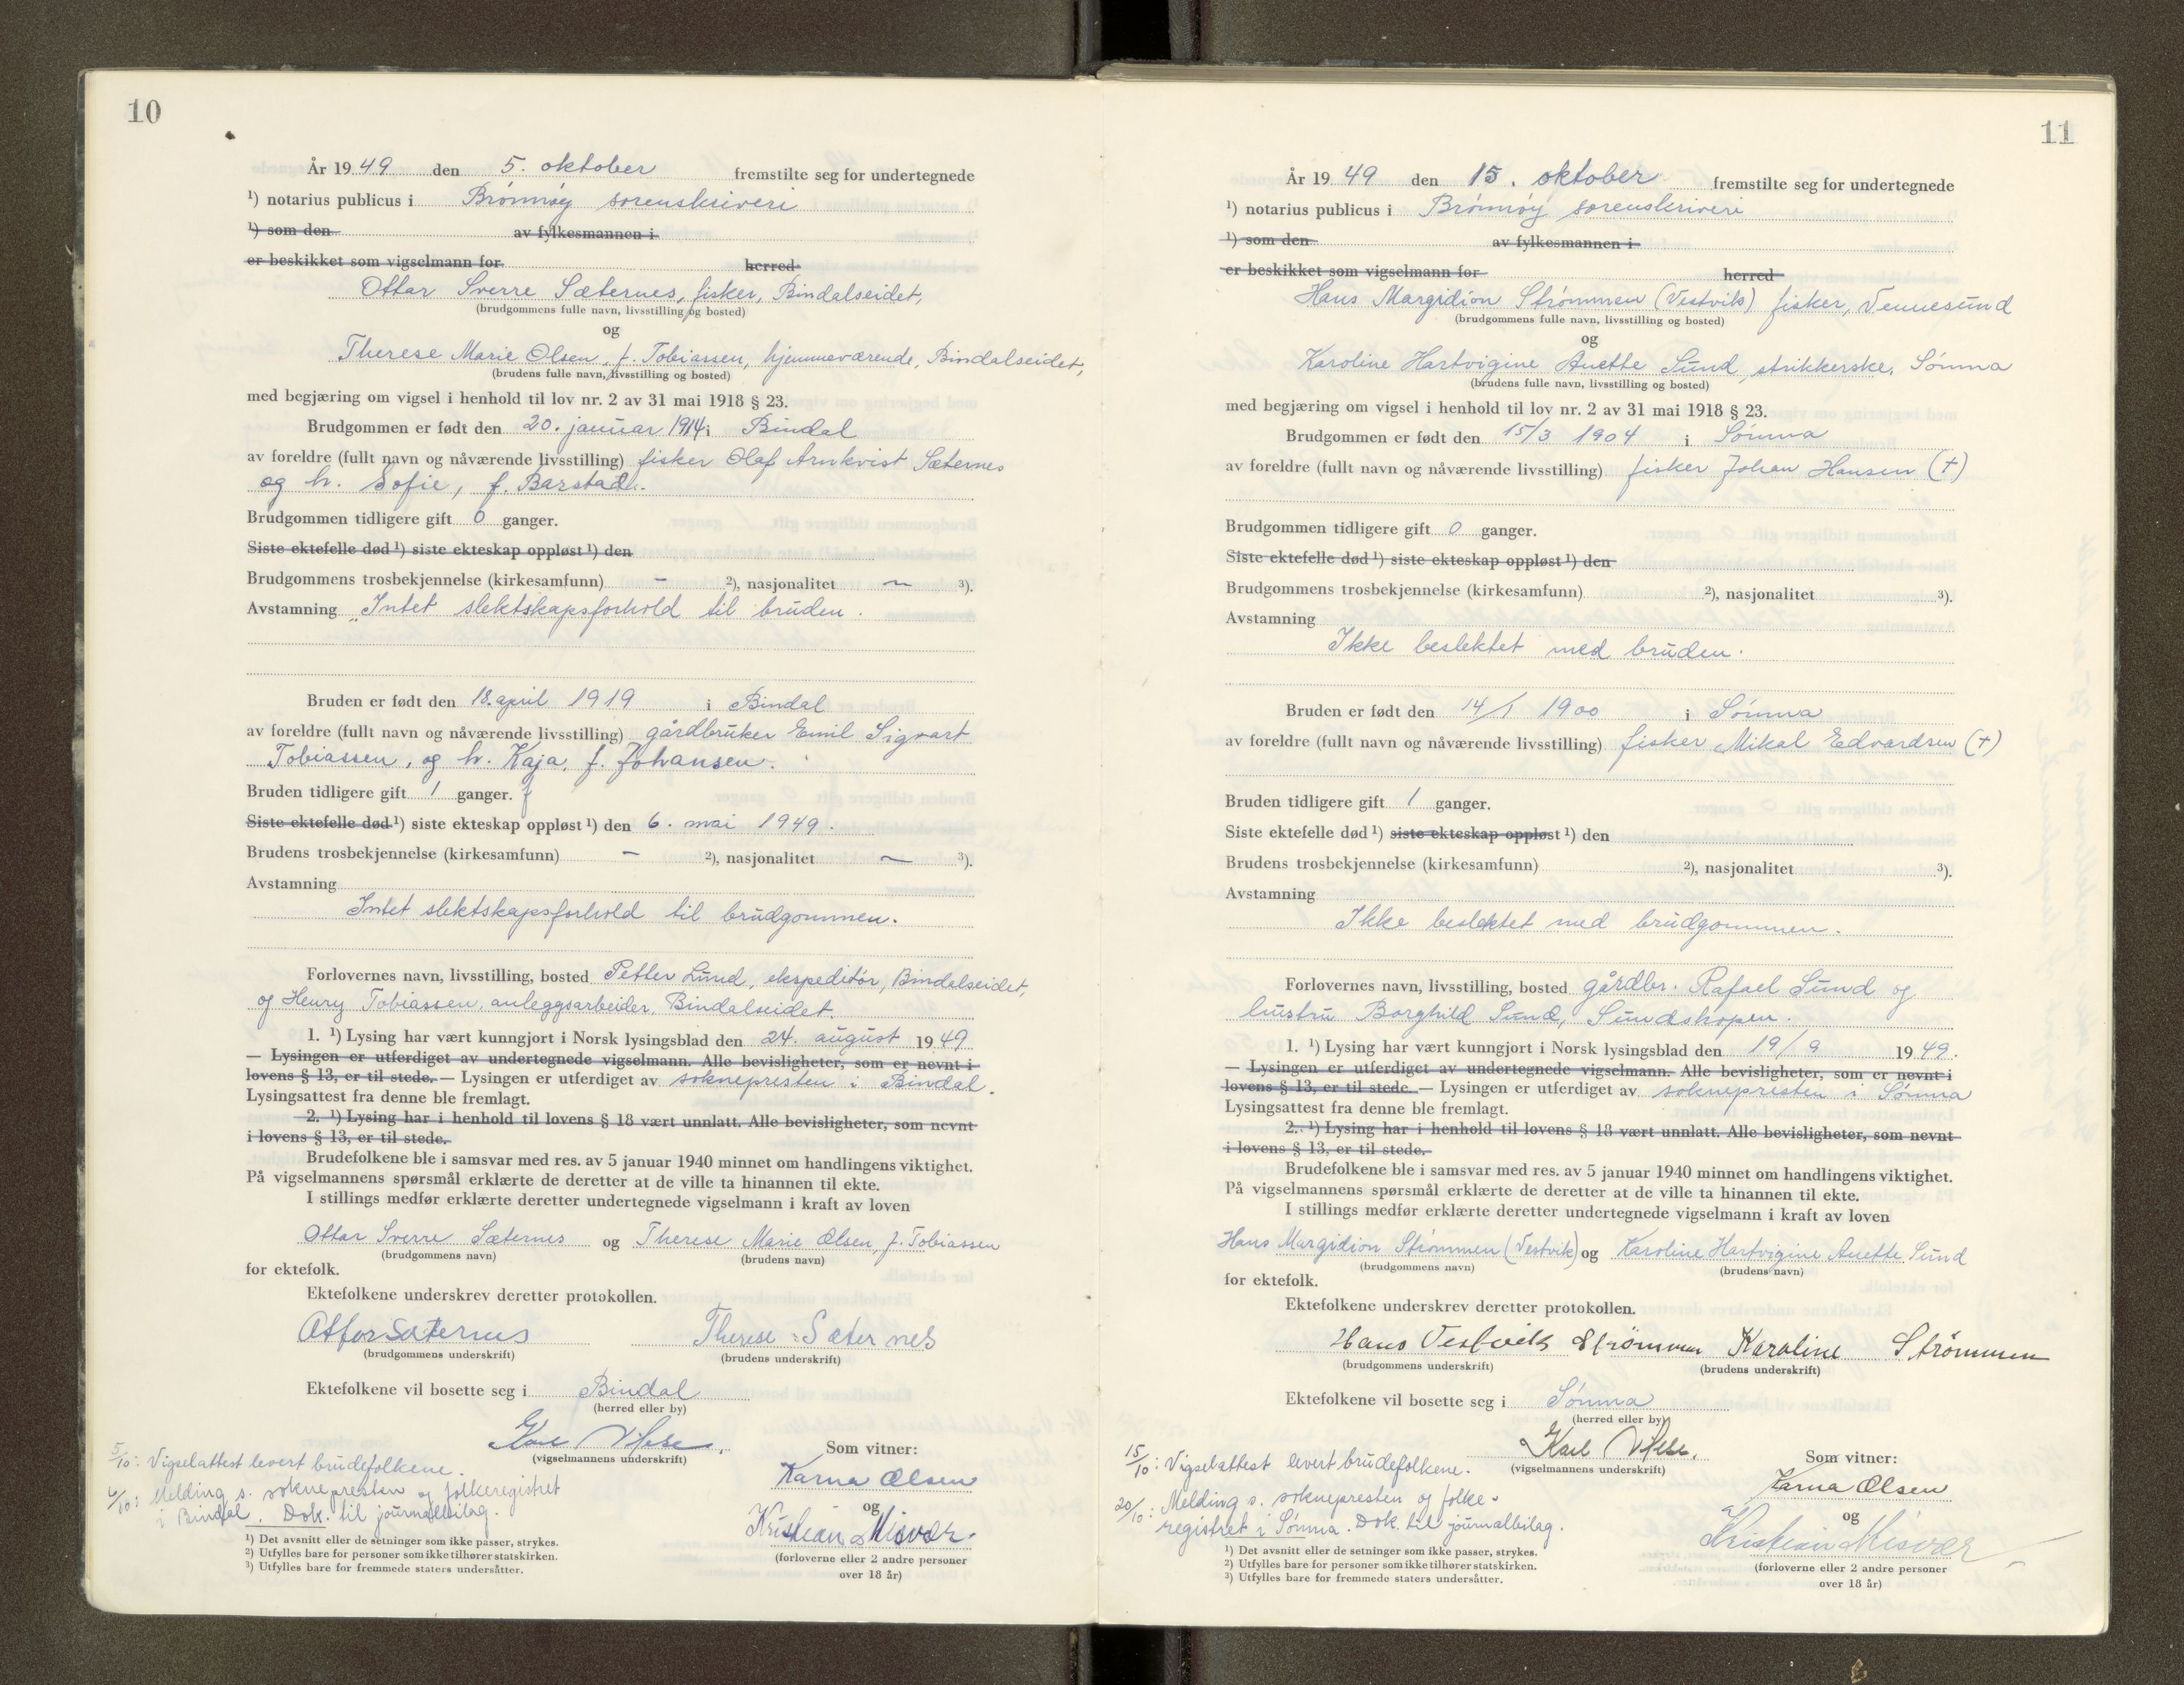 10
År 1949 den 5. oktober fremstilte seg for undertegnede
¹) notarius publicus i Brönnöy sorenskriveri
¹) som den av fylkesmannen i
er beskikket som vigselmann for herred
Ottar Sverre Sæternes, fisker, Bindalseidet,
(brudgommens fulle navn, livsstilling og bosted)
og
Therese Marie Olsen, f. Tobiassen, hjemmeværende, Bindalseidet,
(brudens fulle navn, livsstilling og bosted)
med begjæring om vigsel i henhold til lov nr. 2 av 31 mai 1918 § 23.
Brudgommen er født den 20. januar 1914 i Bindal
av foreldre (fullt navn og nåværende livsstilling) fisker Olaf Arnkvist Sæternes
og h. Sofie, f. Barstad.
Brudgommen tidligere gift 0 ganger.
Siste ektefelle død ¹) siste ekteskap oppløst ¹) den
Brudgommens trosbekjennelse (kirkesamfunn) - ²), nasjonalitet ~ ³).
Avstamning Intet slektskapsforhold til bruden.
Bruden er født den 18. april 1919 i Bindal
av foreldre (fullt navn og nåværende livsstilling) gårdbruker Emil Sigvart
Tobiassen, og h. Kaja, f. Johansen.
Bruden tidligere gift 1 ganger.
Siste ektefelle død ¹) siste ekteskap oppløst ¹) den 6. mai 1949.
Brudens trosbekjennelse (kirkesamfunn) - ²), nasjonalitet ~ ³).
Avstamning
Intet slektskapsforhold til brudgommen.
Forlovernes navn, livsstilling, bosted Petter Lund, ekspeditör, Bindalseidet,
og Henry Tobiassen, anleggsarbeider, Bindalseidet.
1. ¹) Lysing har vært kunngjort i Norsk lysingsblad den 24. august 1949
— Lysingen er utferdiget av undertegnede vigselmann. Alle bevisligheter, som er nevnt i
lovens § 13, er til stede. — Lysingen er utferdiget av soknepresten i Bindal.
Lysingsattest fra denne ble fremlagt.
2. ¹) Lysing har i henhold til lovens § 18 vært unnlatt. Alle bevisligheter, som nevnt
i lovens § 13, er til stede.
Brudefolkene ble i samsvar med res. av 5 januar 1940 minnet om handlingens viktighet.
På vigselmannens spørsmål erklærte de deretter at de ville ta hinannen til ekte.
I stillings medfør erklærte deretter undertegnede vigselmann i kraft av loven
Ottar Sverre Sæternes og Therese Marie Olsen, f. Tobiassen
(brudgommens navn) (brudens navn)
for ektefolk.
Ektefolkene underskrev deretter protokollen.
Ottar Sæternes Therese Sæternes
(brudgommens underskrift) (brudens underskrift)
Ektefolkene vil bosette seg i Bindal
(herred eller by)
Karl
(vigselmannens underskrift)
Som vitner:
Karna Olsen
og
Kristian Misvær.
(forloverne eller 2 andre personer
over 18 år)
5/10: Vigselattest levert brudefolkene.
6/10: Melding s. soknepresten og folkeregistret
i Bindal. Dok. til journalbilag.
¹) Det avsnitt eller de setninger som ikke passer, strykes.
²) Utfylles bare for personer som ikke tilhører statskirken.
³) Utfylles bare for fremmede staters undersåtter.
11
År 1949 den 15. oktober fremstilte seg for undertegnede
¹) notarius publicus i Brönnöy sorenskriveri
¹) som den av fylkesmannen i
er beskikket som vigselmann for herred
Hans Margidion Strömmen (Vestvik) fisker, Vennesund
(brudgommens fulle navn, livsstilling og bosted)
og
Karoline Hartvigine Anette Sund, strikkerske, Sömna
(brudens fulle navn, livsstilling og bosted)
med begjæring om vigsel i henhold til lov nr. 2 av 31 mai 1918 § 23.
Brudgommen er født den 15/3 1904 i Sömna
av foreldre (fullt navn og nåværende livsstilling) fisker Johan Hansen (†)
Brudgommen tidligere gift 0 ganger.
Siste ektefelle død ¹) siste ekteskap oppløst ¹) den
Brudgommens trosbekjennelse (kirkesamfunn) ²), nasjonalitet ³).
Avstamning
Ikke beslektet med bruden.
Bruden er født den 14/1 1900 i Sömna
av foreldre (fullt navn og nåværende livsstilling) fisker Mikal Edvardsen (†)
Bruden tidligere gift 1 ganger.
Siste ektefelle død ¹) siste ekteskap oppløst ¹) den
Brudens trosbekjennelse (kirkesamfunn) ²), nasjonalitet ³).
Avstamning
Ikke beslektet med brudgommen.
Forlovernes navn, livsstilling, bosted gårdbr. Rafael Sund og
hustru Borghild Sund, Sundshopen.
1. ¹) Lysing har vært kunngjort i Norsk lysingsblad den 19/9 1949.
— Lysingen er utferdiget av undertegnede vigselmann. Alle bevisligheter, som er nevnt i
lovens § 13, er til stede. — Lysingen er utferdiget av soknepresten i Sömna
Lysingsattest fra denne ble fremlagt.
2. ¹) Lysing har i henhold til lovens § 18 vært unnlatt. Alle bevisligheter, som nevnt
i lovens § 13, er til stede.
Brudefolkene ble i samsvar med res. av 5 januar 1940 minnet om handlingens viktighet.
På vigselmannens spørsmål erklærte de deretter at de ville ta hinannen til ekte.
I stillings medfør erklærte deretter undertegnede vigselmann i kraft av loven
Hans Margidion Strömmen (Vestvik) og Karoline Hartvigine Anette Sund
(brudgommens navn) (brudens navn)
for ektefolk.
Ektefolkene underskrev deretter protokollen.
Hans Vestvik Strömmen Karoline Strömmen
(brudgommens underskrift) (brudens underskrift)
Ektefolkene vil bosette seg i Sömna
(herred eller by)
Karl
(vigselmannens underskrift)
Som vitner:
Karna Olsen
og
Kristian Misvær
(forloverne eller 2 andre personer
over 18 år)
15/10: Vigselattest levert brudefolkene.
20/10: Melding s. soknepresten og folke-
registret i Sömna. Dok. til journalbilag.
¹) Det avsnitt eller de setninger som ikke passer, strykes.
²) Utfylles bare for personer som ikke tilhører statskirken.
³) Utfylles bare for fremmede staters undersåtter.